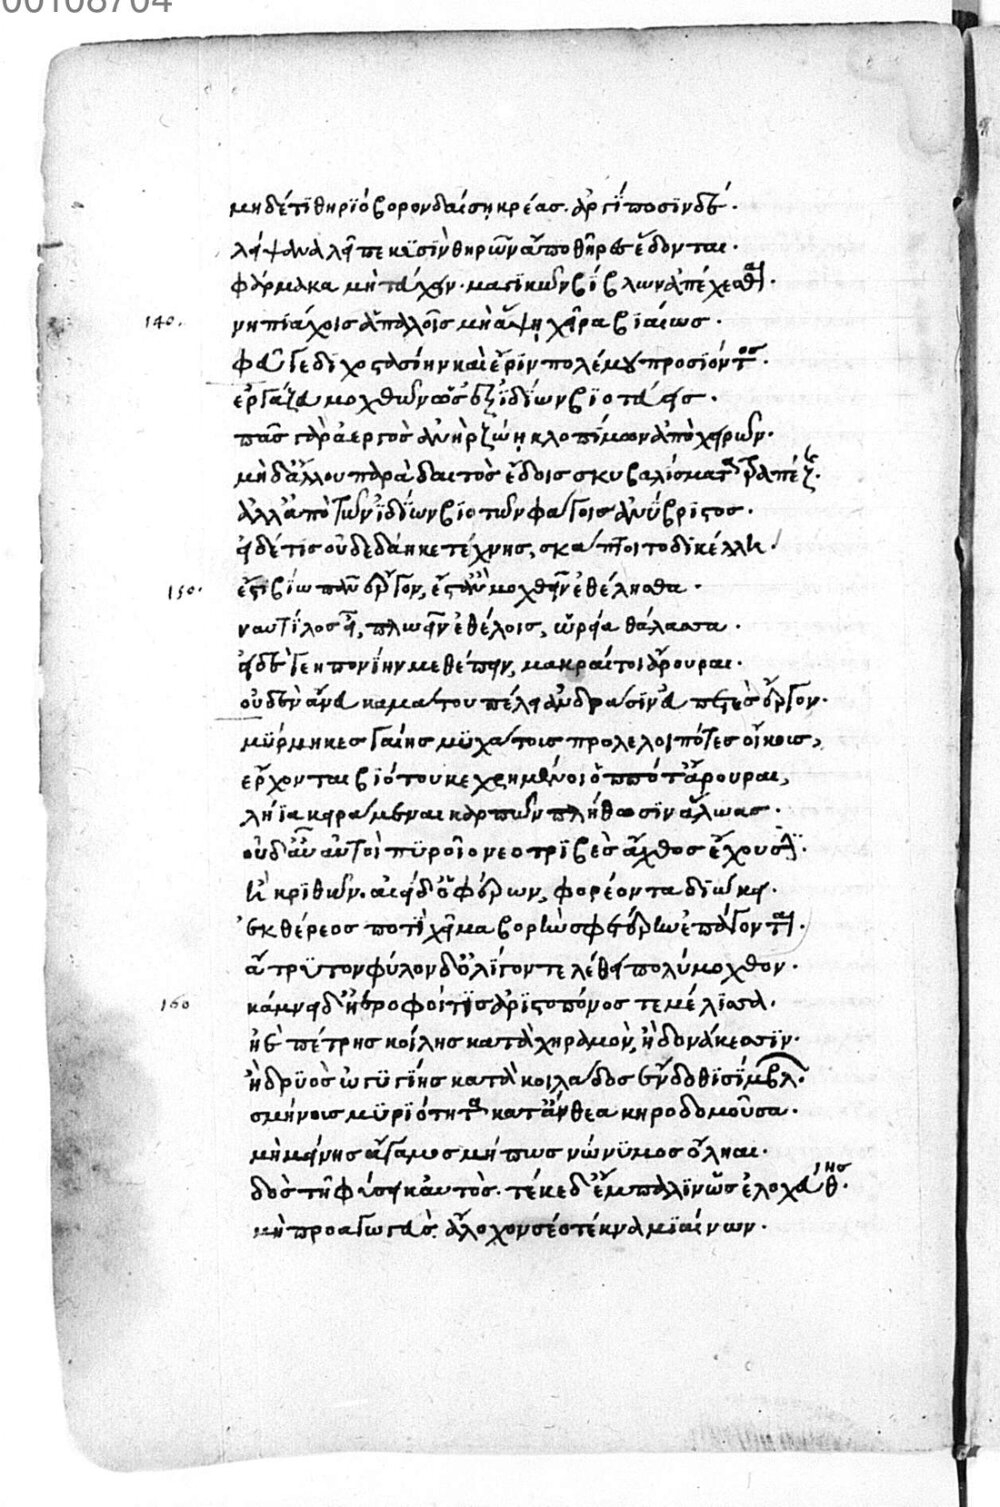 00108704
μηδέ τι θηριόβορον δαίση κρέας. ἀργίποσιν δὲ.
λείψανα λεῖπε κυσὶν θηρῶν ἄπο θῆρες ἔδονται.
φάρμακα μὴ τεύχειν. μαγικῶν βίβλων ἀπέχεσθαι.
140. νηπιάχοις ἁπαλοῖς μὴ ἅψῃ χεῖρα βιαίως.
φεῦγε διχοστασίην καὶ ἔριν πολέμου προσιόντος.
ἐργάζευ μοχθῶν ὡς ἐξ ἰδίων βιοτεύῃς.
πᾶς γὰρ ἀεργὸς ἀνὴρ ζώῃ κλοπίμων ἀπὸ χειρῶν.
μὴδ' ἄλλου παρὰ δαιτὸς ἔδοις σκυβαλίσματα τραπέζης.
ἀλλ' ἀπὸ τῶν ἰδίων βίοτων φάγοις ἀνύβριστος.
εἰ δέ τις οὐ δεδάηκε τέχνης, σκάπτοιτο δικέλλῃ.
150. ἔστι βίῳ πᾶν ἔργον, ἐπὰν μοχθεῖν ἐθέλησθα.
ναυτίλος εἶ, πλώειν ἐθέλοις, εὐρεῖα θάλασσα.
εἰ δὲ γεηπονίην μεθέπειν, μακραί τοι ἄρουραι.
οὐδὲν ἄνευ καμάτου πέλει ἀνδράσιν εὐπετὲς ἔργον.
μύρμηκες γαίης μυχάτοις προλελοιπότες οἴκοις,
ἔρχονται βιότου κεχρημένοι ὁππότ' ἄρουραι,
λήϊα κειράμεναι καρπῶν πλήθωσιν ἅλωας.
οὐδ' ἂν αὐτοὶ πυροῖο νεοτριβὲς ἄχθος ἔχουσιν.
ἢ κριθῶν. αἰεὶ δ' ὁ φέρων, φορέοντα διώκει.
ἐκ θέρεος ποτὶ χεῖμα βορὴν σφετέρην ἐπάγονται.
ἄτρυτον φύλον δ' ὀλίγον τελέθει πολύμοχθον.
160 κάμνει δ' ἠεροφοίτις ἀριστοπόνος τε μέλισσα.
ἠὲ πέτρης κοίλης κατὰ χηραμὸν, ἢ δονάκεσσιν.
ἢ δρυὸς ὠγυγίης κατὰ κοιλάδος ἔνδοθι σίμβλων.
σμήνοις μυριότητα κατ' ἄνθεα κηροδομοῦσα.
μὴ μείνῃς ἄγαμος μή πως νώνυμος ὄληαι.
δὸς τῇ φύσει καὐτὸς. τέκε δ' ἔμπαλιν ὡς ἐλοχεύθης.
μὴ προαγωγεύσῃς ἄλοχον σέο τέκνα μιαίνων.